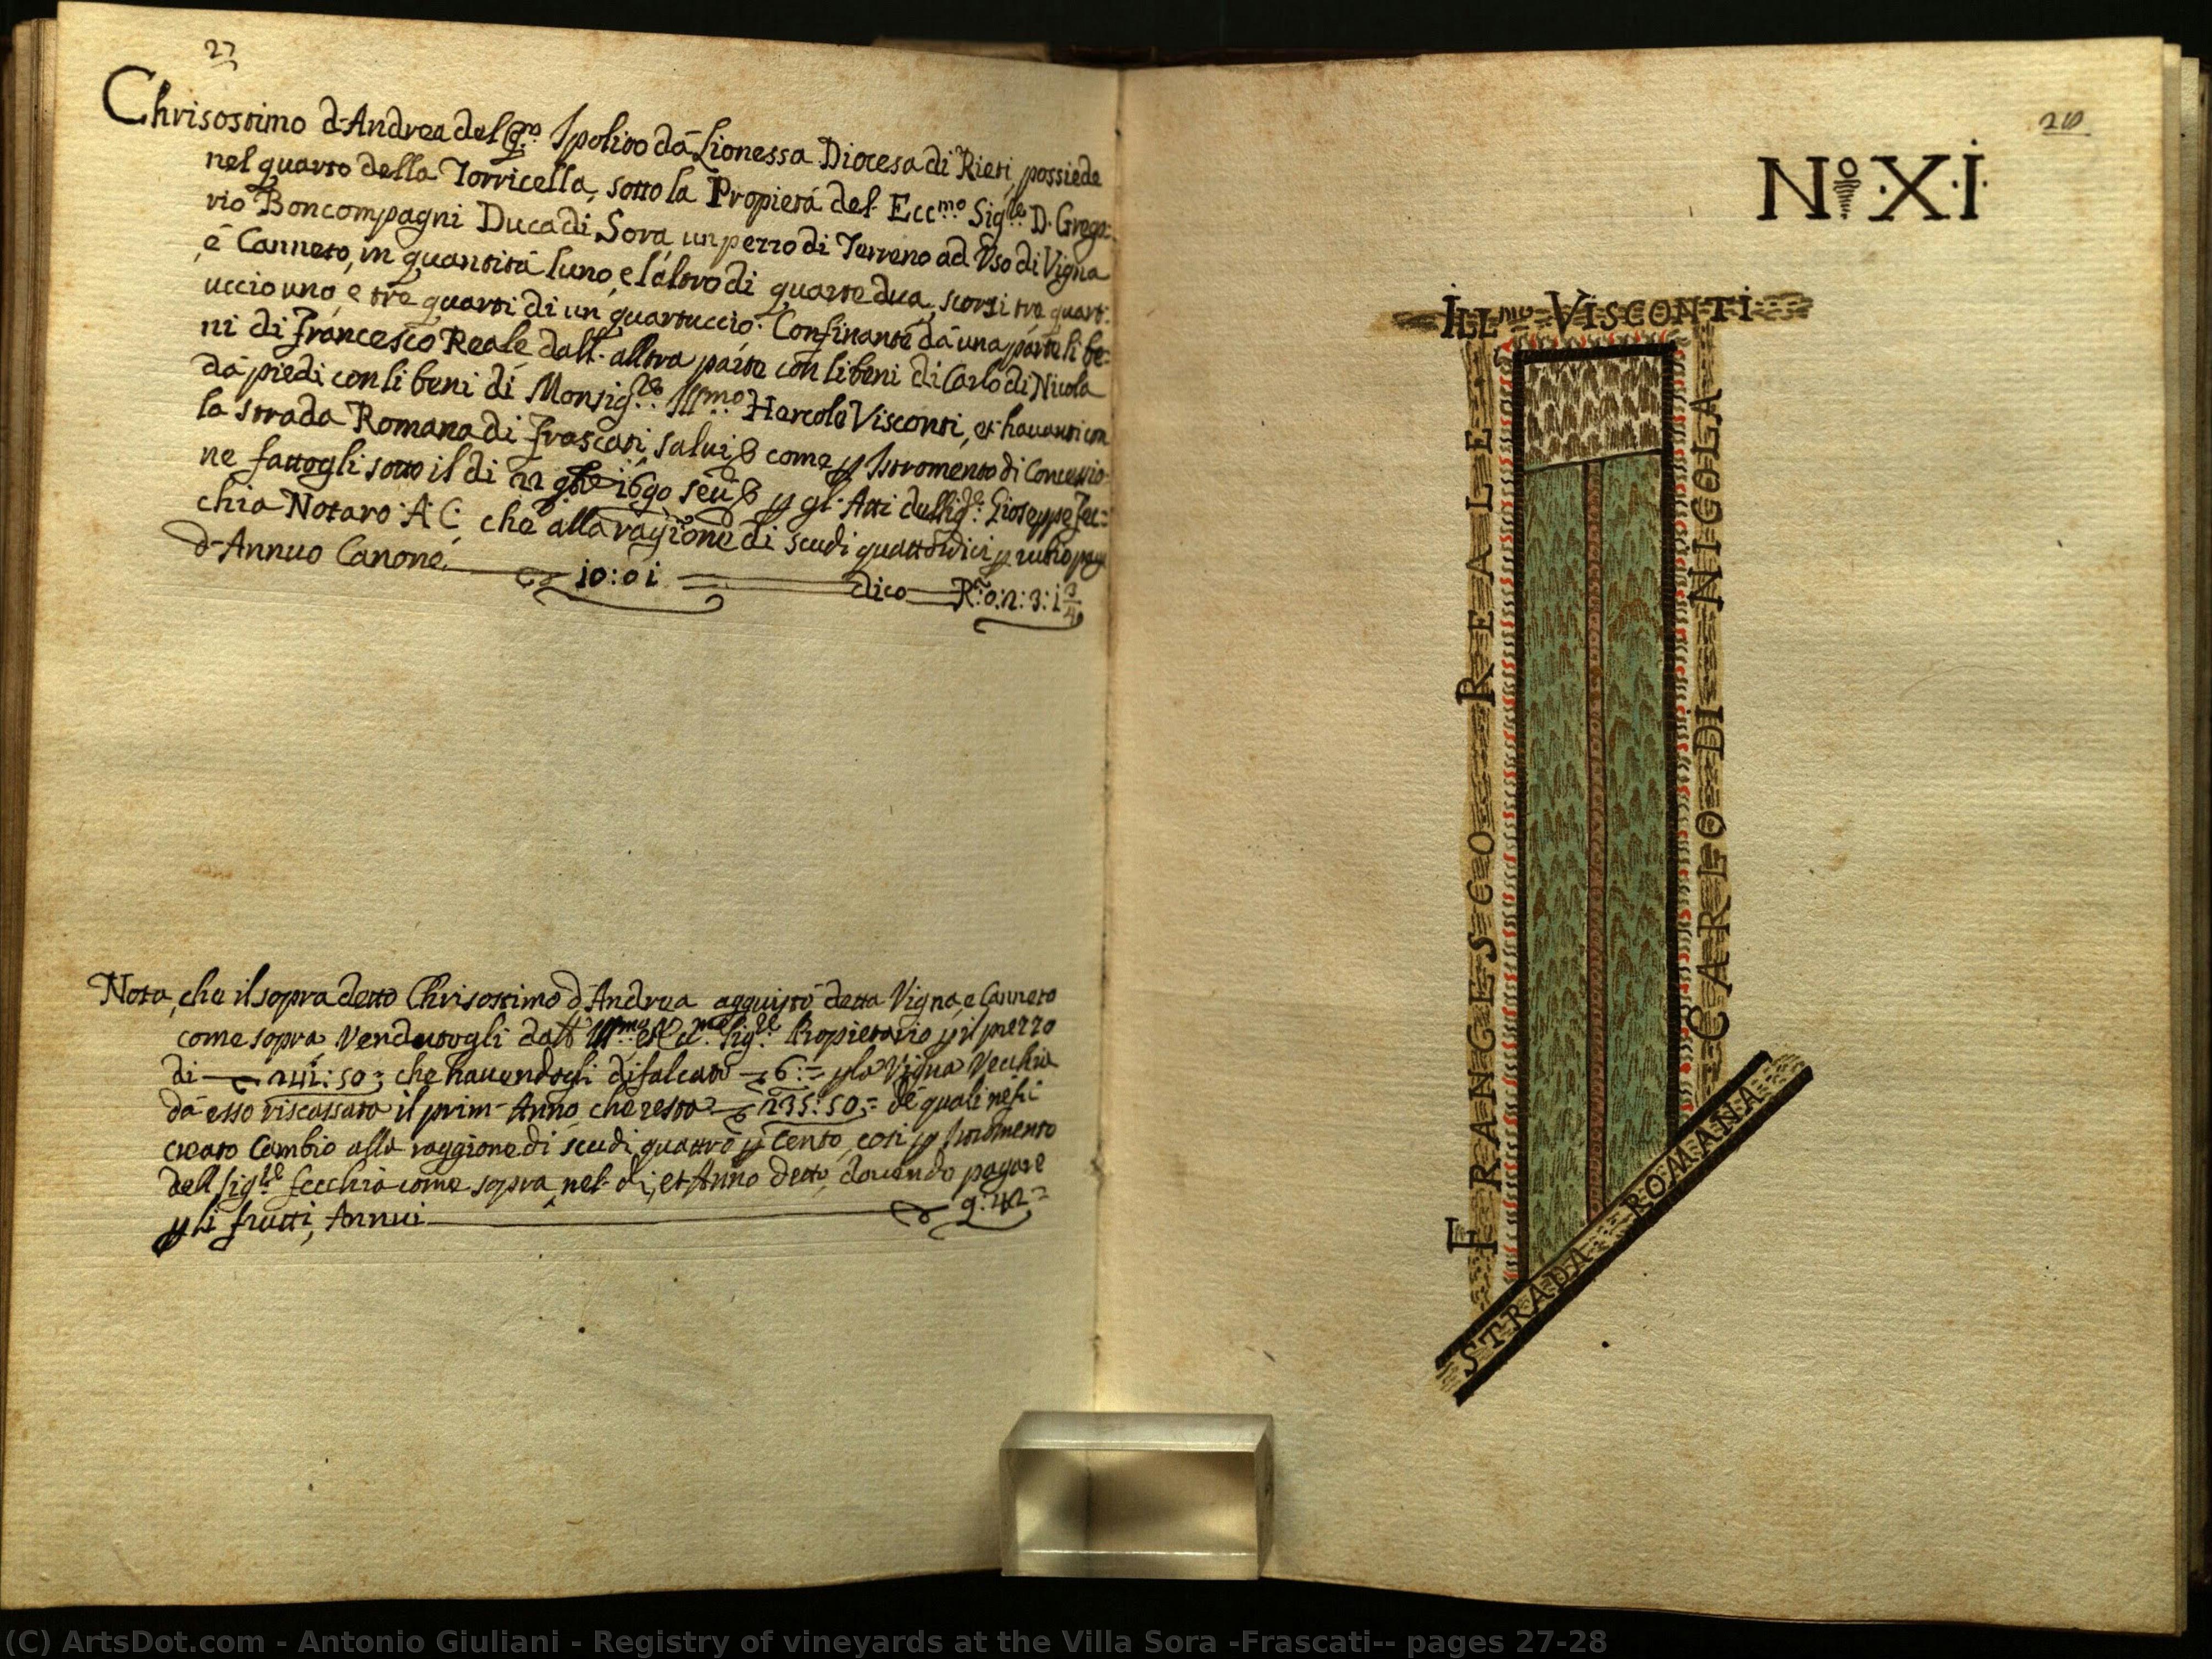 27
Chrisostimo d'Andrea del q.m Ipolito dà Lionessa Diocesa di Rieti, possiede
nel quarto della Torricella, sotto la Propietà del Ecc.mo Sig.re D. Grego:
rio Boncompagni Duca di Sora, un pezzo di Terreno ad Uso di Vigna
, é Canneto, in quantità l'uno, e l'altro di quarte dua, scorzi tre quart:
uccio uno, e tre quarti di un quartuccio. Confinante dà una parte li be:
ni di Francesco Reale dall' altra parte con li beni di Carlo di Nicola
dà piedi con li beni di Monsig.re Ill.mo Harcole Visconti, et havanti con
la strada Romana di Frascati, salvi & come p Istromento di Concessio:
ne fattogli sotto il di 22 9bre 1690 seu & p gl' Atti dell Sig.re Gioseppe Fec=
chia Notaro A C. che alla ragione di scudi quattordici p rubio paga
d'Annuo Canone 10:01 dico R.o 0:2:3:1 3/4
Nota, che il sopra detto Chrisostimo d'Andrea acquistò detta Vigna, e Canneto
come sopra Vendutogli dall' Ill.mo et Ecc.mo Sig.re Propietario p il prezzo
di 241:50; che havendogli difalcato 6:= p la Vigna Vecchia
dà esso riscassata il prim' Anno che resta 235:50:= de quali ne fù
creato Cambio alla raggione di scudi quattro p Cento, così p Istromento
dell Sig.re Fecchia come sopra, nel di, et Anno detto, dovendo pagare
p li frutti, Annui 9:42=
28
N.o X.I
ILL.mo VISCONTI
FRANCESCO REALE
CARLO DI NICOLA
STRADA ROMANA
(C) ArtsDot.com - Antonio Giuliani - Registry of vineyards at the Villa Sora -Frascati-- pages 27-28